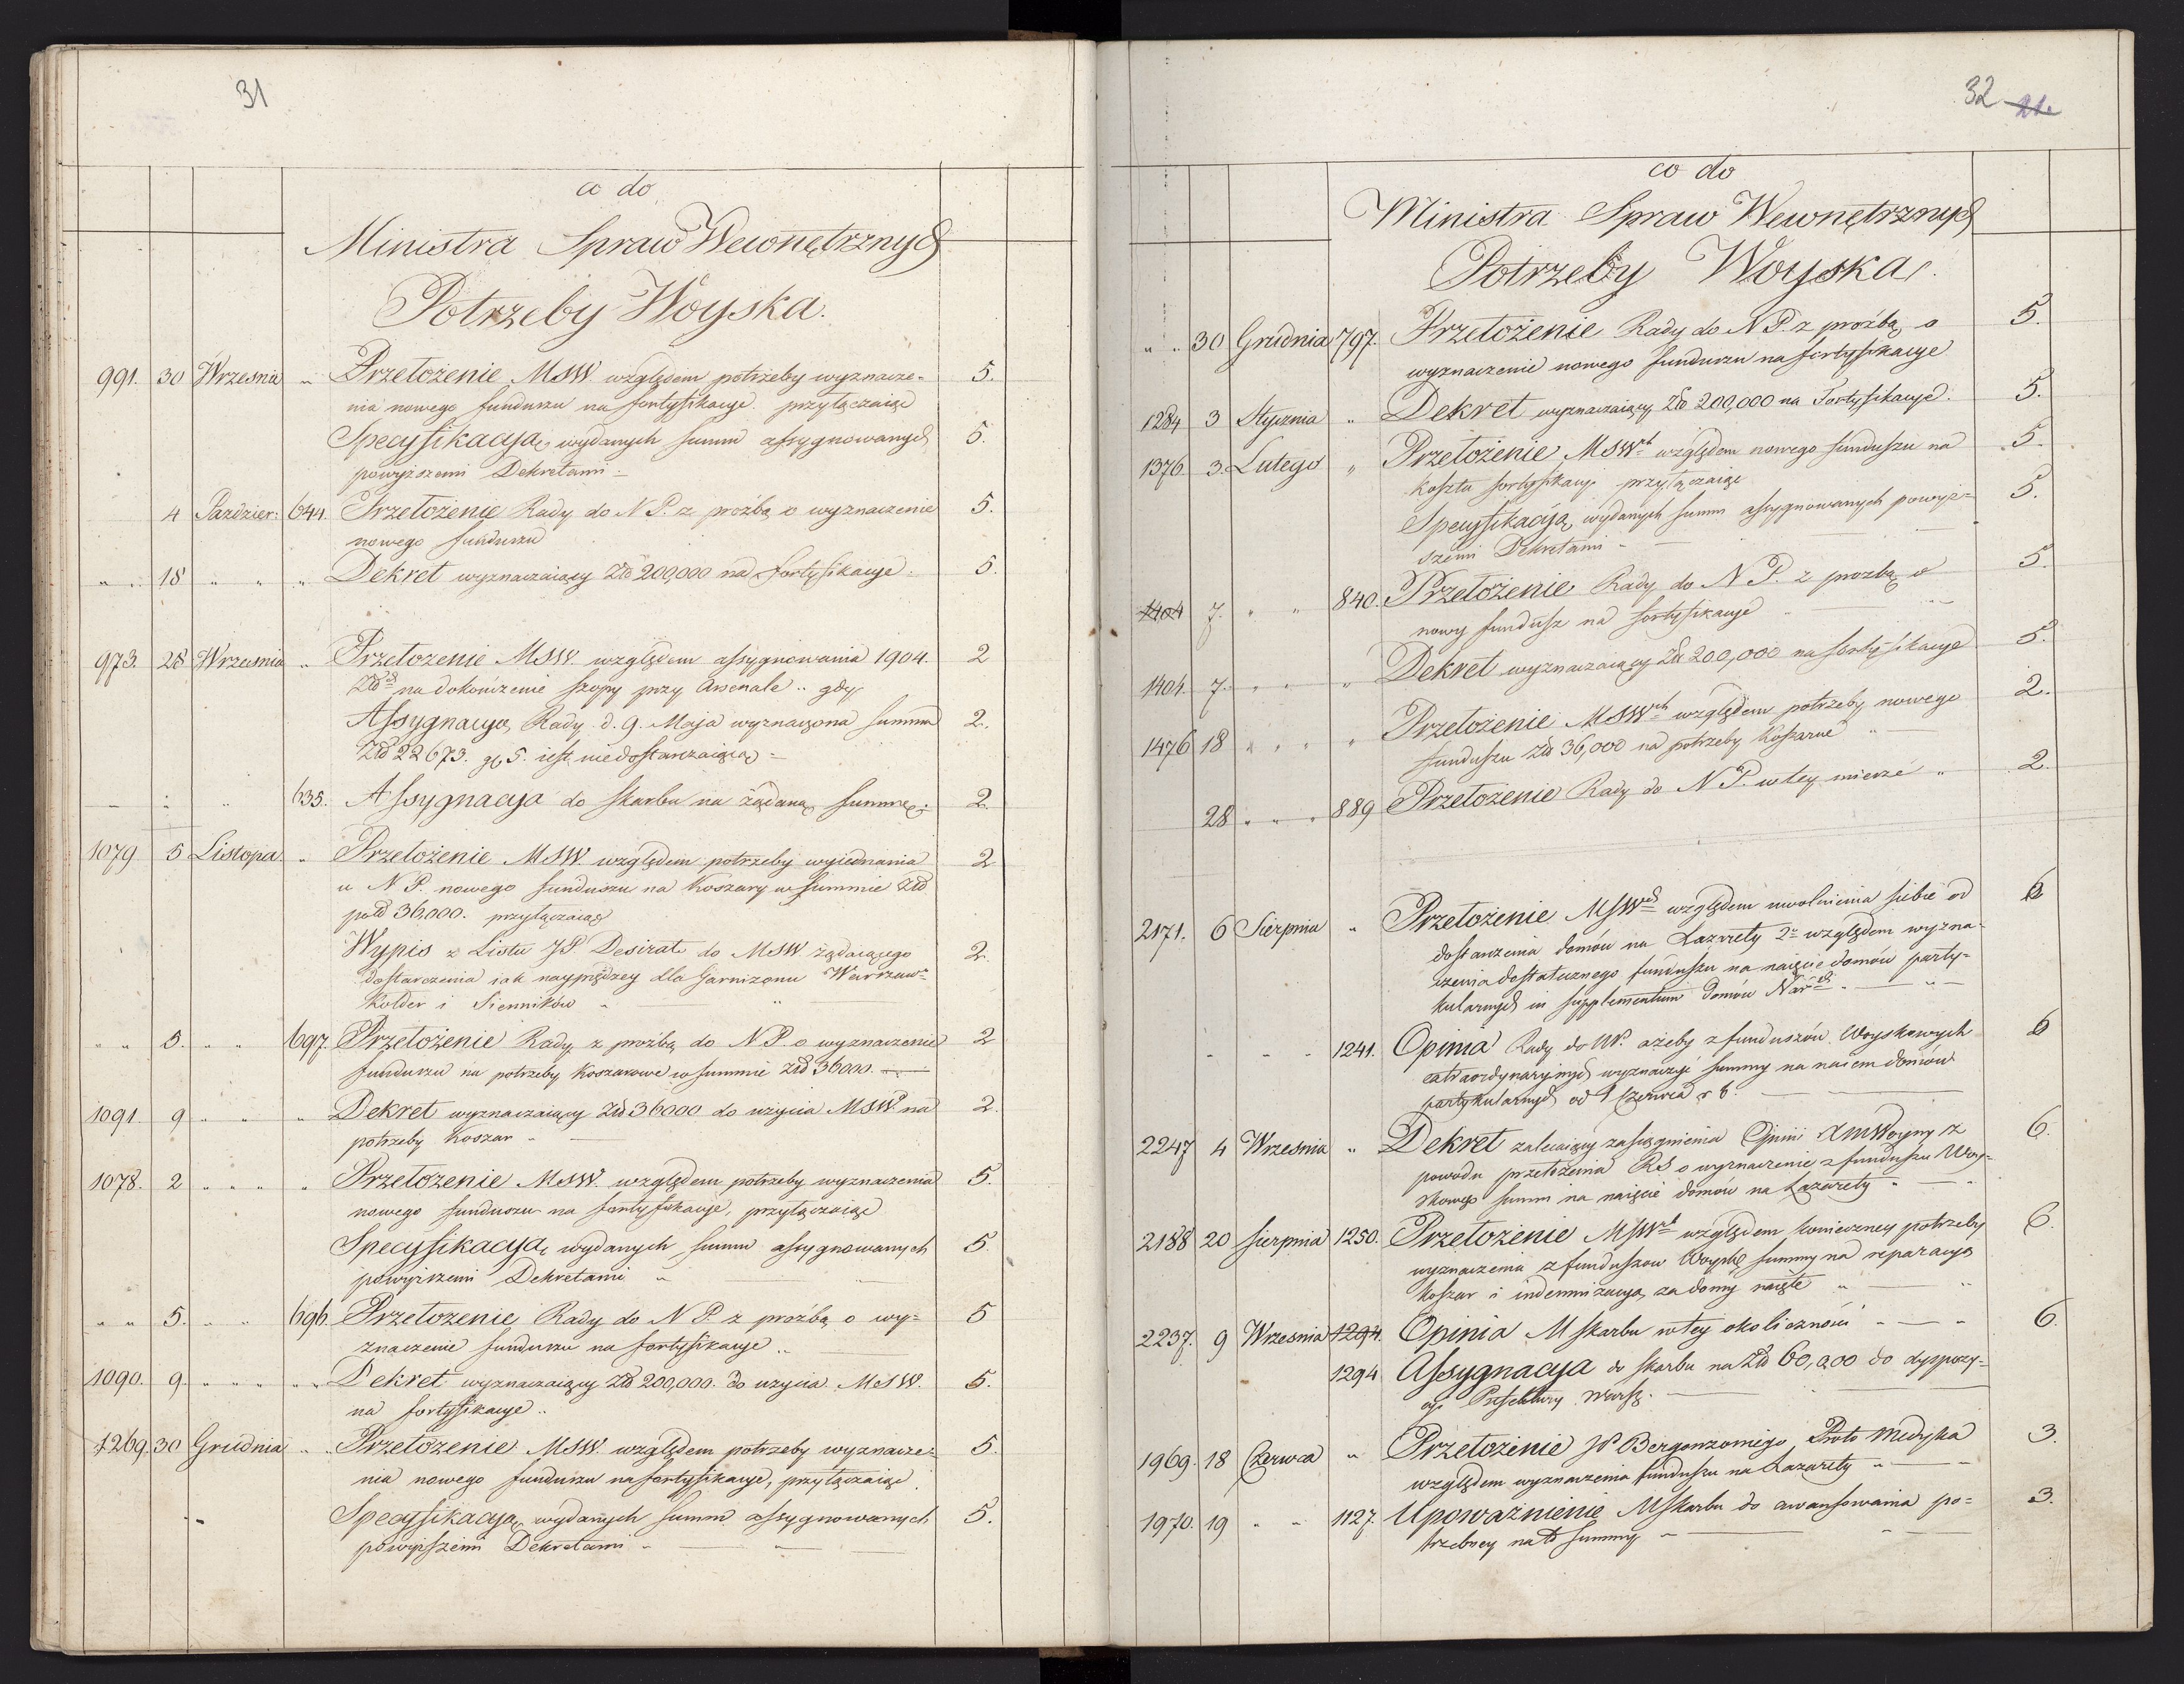 31
co do
Ministra Spraw Wewnętrznych
Potrzeby Woyska.
991. 30 Wrzesnia " Przełożenie MSW. względem potrzeby wyznacze- 5.
nia nowego funduszu na fortyfikacye przyłączaiąc
Specyfikacyą wydanych summ assygnowanych 5.
powyższemi Dekretami -
4 Pazdzier: 644. Przełożenie Rady do N P. z proźbą o wyznaczenie 5.
nowego funduszu
" " 18 " " " Dekret wyznaczaiący Złł 200,000 na fortyfikacye. 5.
973. 28 Wrzesnia " Przełożenie MSW. względem assygnowania 1904. 2
Złł na dokończenie szopy przy Arsenale .. gdy
Assygnacya Rady d. 9. Maja wyznaczona summa 2.
Złł 22673. g. 5. iest niedostarczaiącą -
635. Assygnacya do skarbu na żądaną summę. 2.
1079 5 Listopa. " Przełożenie MSW. względem potrzeby wyiednania 2
u N P. nowego funduszu na Koszary w summie Złł
pold 36,000. przyłączaiąc
Wypis z Listu JP. Desirat do MSW żądaiącego 2.
dostarczenia iak nayprędzey dla Garnizonu Warszaw.
Kołder i Sienników "
" " 5. " " 697. Przełożenie Rady z proźbą do N P. o wyznaczenie 2
funduszu na potrzeby Koszarowe w summie Złł 36000. —
1091. 9 " " " Dekret wyznaczaiący Złł 36000 do użycia MSW na 2.
potrzeby Koszar "
1078. 2 " " " Przełożenie MSW. względem potrzeby wyznaczenia 5.
nowego funduszu na fortyfikacye, przyłączaiąc
Specyfikacyą wydanych summ assygnowanych 5.
powyższemi Dekretami "
" " 5. " " 696. Przełożenie Rady do N P. z proźbą o wy= 5
znaczenie funduszu na fortyfikacye "
1090. 9. " " " Dekret wyznaczaiący Złł 200,000. do użycia MSW. 5.
na fortyfikacye "
1269. 30 Grudnia " Przełożenie MSW. względem potrzeby wyznacze= 5.
nia nowego funduszu na fortyfikacye, przyłączaiąc
Specyfikacyą wydanych summ assygnowanych 5.
powyższemi Dekretami "
32
co do
Ministra Spraw Wewnętrznych
Potrzeby Woyska.
" " 30 Grudnia 797. Przełożenie Rady do N P. z proźbą o 5.
wyznaczenie nowego funduszu na fortyfikacye
1284 3 Stycznia " Dekret wyznaczaiący Złł 200,000 na Fortyfikacye. 5.
1376. 3. Lutego " Przełożenie MSW względem nowego funduszu na 5.
koszta fortyfikacyi przyłączaiąc
Specyfikacyą wydanych summ assygnowanych powyż= 5.
szemi Dekretami -
1404 7. " " 840. Przełożenie Rady do N P. z proźbą o 5.
nowy fundusz na fortyfikacye
1404. 7. " " " Dekret wyznaczaiący Złł 200,000 na fortyfikacye 5.
1476 18 " " " Przełożenie MSW względem potrzeby nowego 2.
funduszu Złł 36,000 na potrzeby Koszarne "
28 " " 889 Przełożenie Rady do N P. w tey mierze " 2.
2171. 6 Sierpnia " Przełożenie MSW względem uwolnienia siebie od 6
dostarczenia domów na Lazarety 2° względem wyzna-
czenia dostatecznego funduszu na naięcie domów party-
kularnych in supplementum domów Nar
1241. Opinia Rady do NP. ażeby z funduszów Woyskowych 6
extraordynaryinych wyznaczyć summy na naiem domów
partykularnych od 1 Czerwca r b.
2247 4 Wrzesnia " Dekret zalecaiący zasięgnienia Opinii Woyny z 6.
powodu przełożenia RS o wyznaczenie z funduszu Woy=
skowego summ na naięcie domów na Lazarety "
2188 20 Sierpnia 1250. Przełożenie MSW względem konieczney potrzeby 6.
wyznaczenia z funduszów summy na reparacyą
koszar i indemnizacyą za domy naięte "
2237. 9 Wrzesnia 1294. Opinia M skarbu w tey okoliczności " 6.
1294 Assygnacya do skarbu na Złł 60,000 do dyspozy=
cyi Prefektury Warsz.
1969. 18 Czerwca " Przełożenie JP Bergonzoniego Proto Medyka 3.
względem wyznaczenia funduszu na Lazarety "
1970. 19 " " 1127. Upoważnienie MSkarbu do awansowania po= 3.
trzebney na to summy "